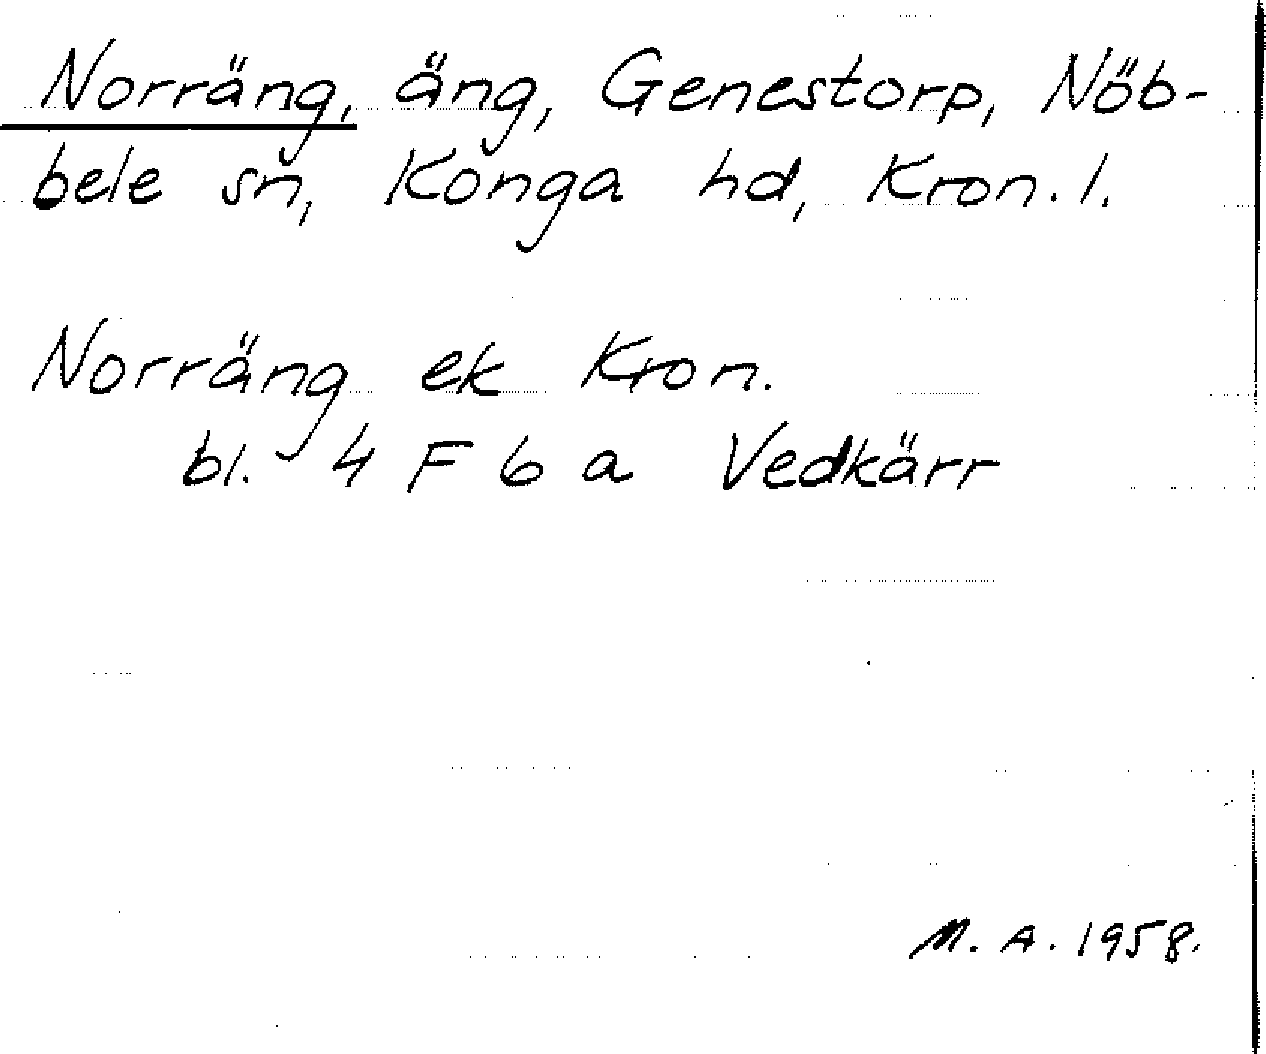 Norräng, äng, Genestorp, Nöb-
bele sn, Konga hd, Kron. l.
Norräng ek Kron.
bl. 4 F 6 a Vedkärr
M. A. 1958.